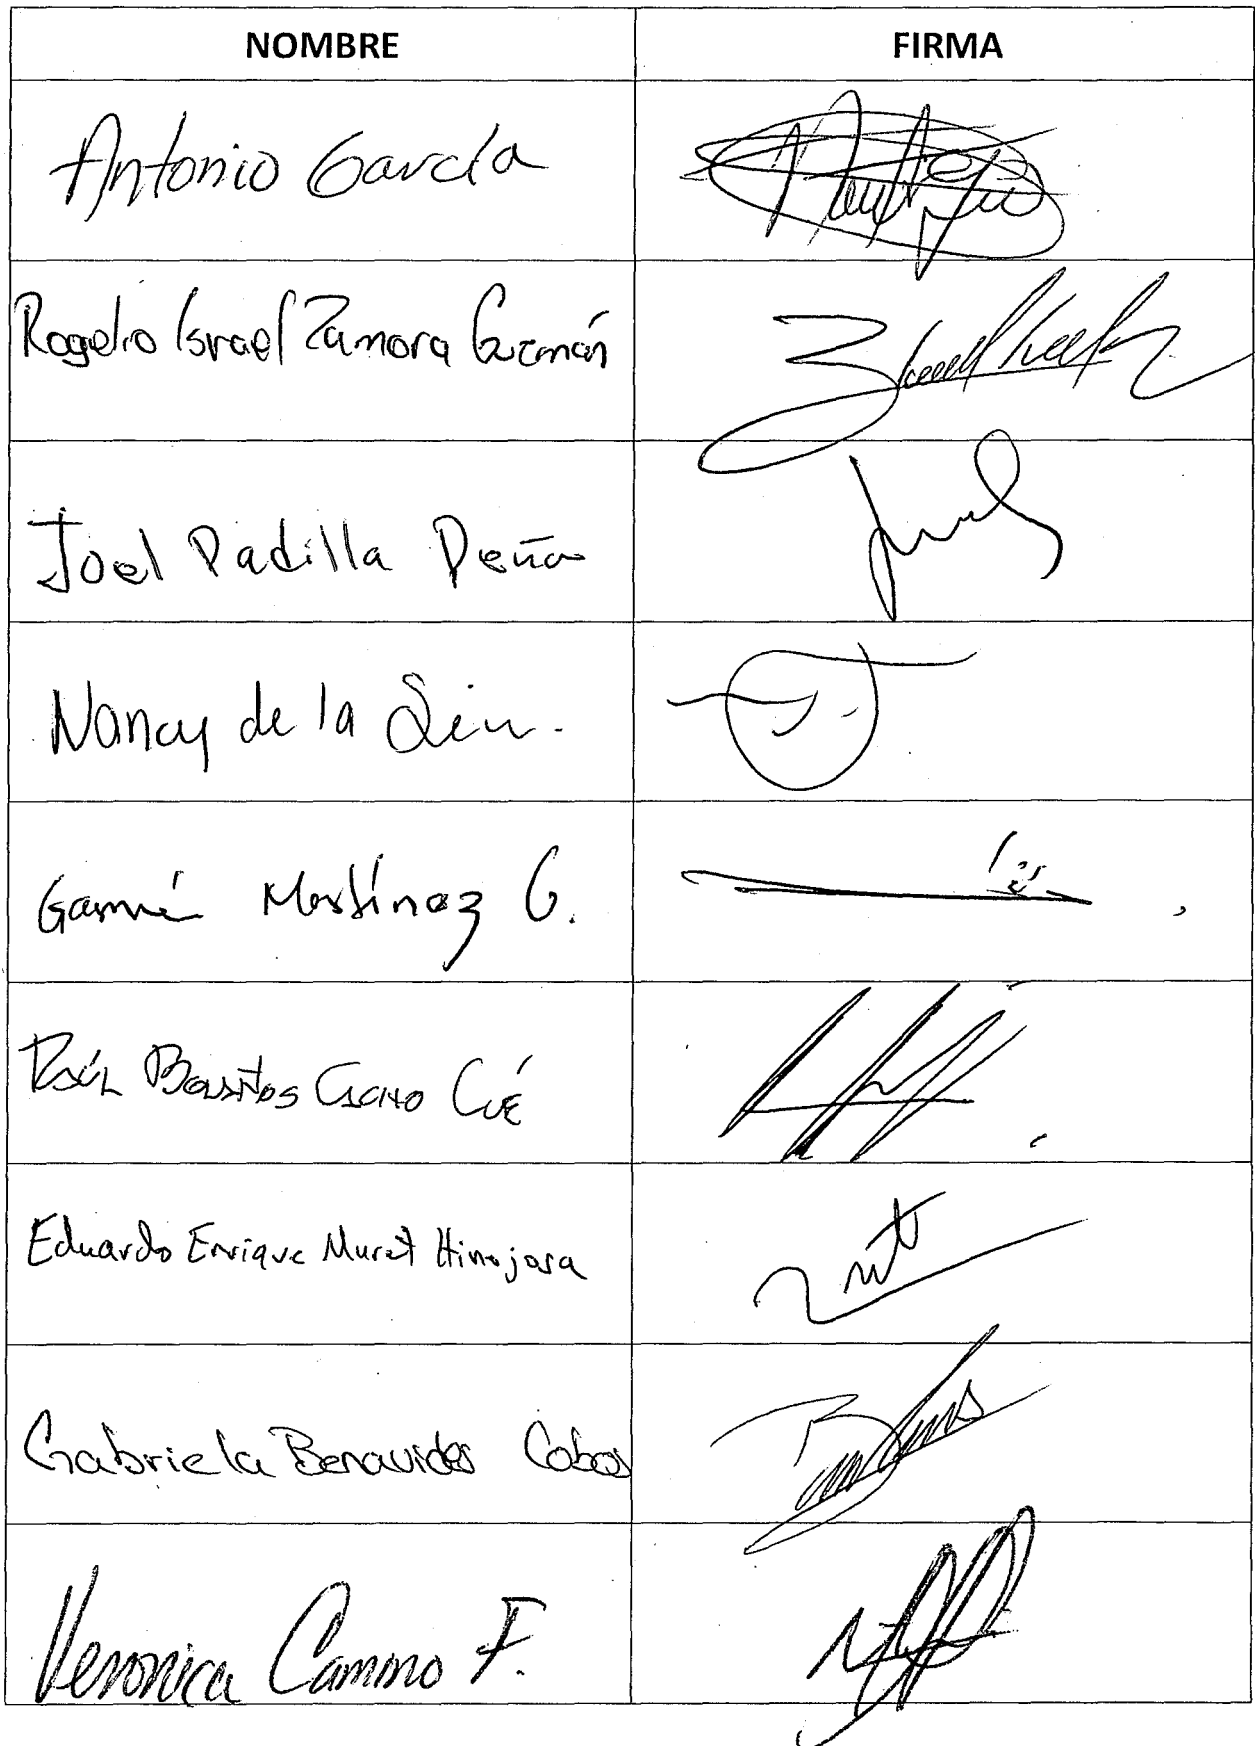 NOMBRE FIRMA
Antonio García
Rogelio Israel Zamora Guzmán
Joel Padilla Peña
Nancy de la Sierra
Martínez G.
Raúl Bolaños Cacho Cué
Eduardo Enrique Murat Hinojosa
Gabriela Benavides Cobos
Veronica Camino F.